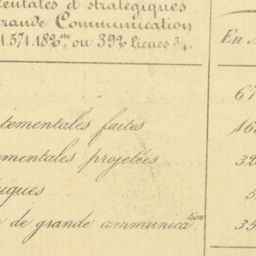 entales et stratégiques
rande Communication
1.571.182.m ou 392 lieues 3/4.
En
67
tementales faites
mementales projetées
32
iques
5
de grande communication
35